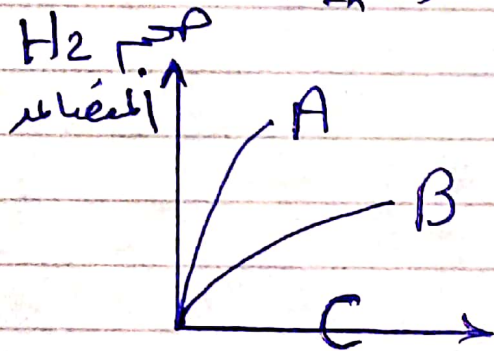 حجم H2
المتصاعد
A
B
C